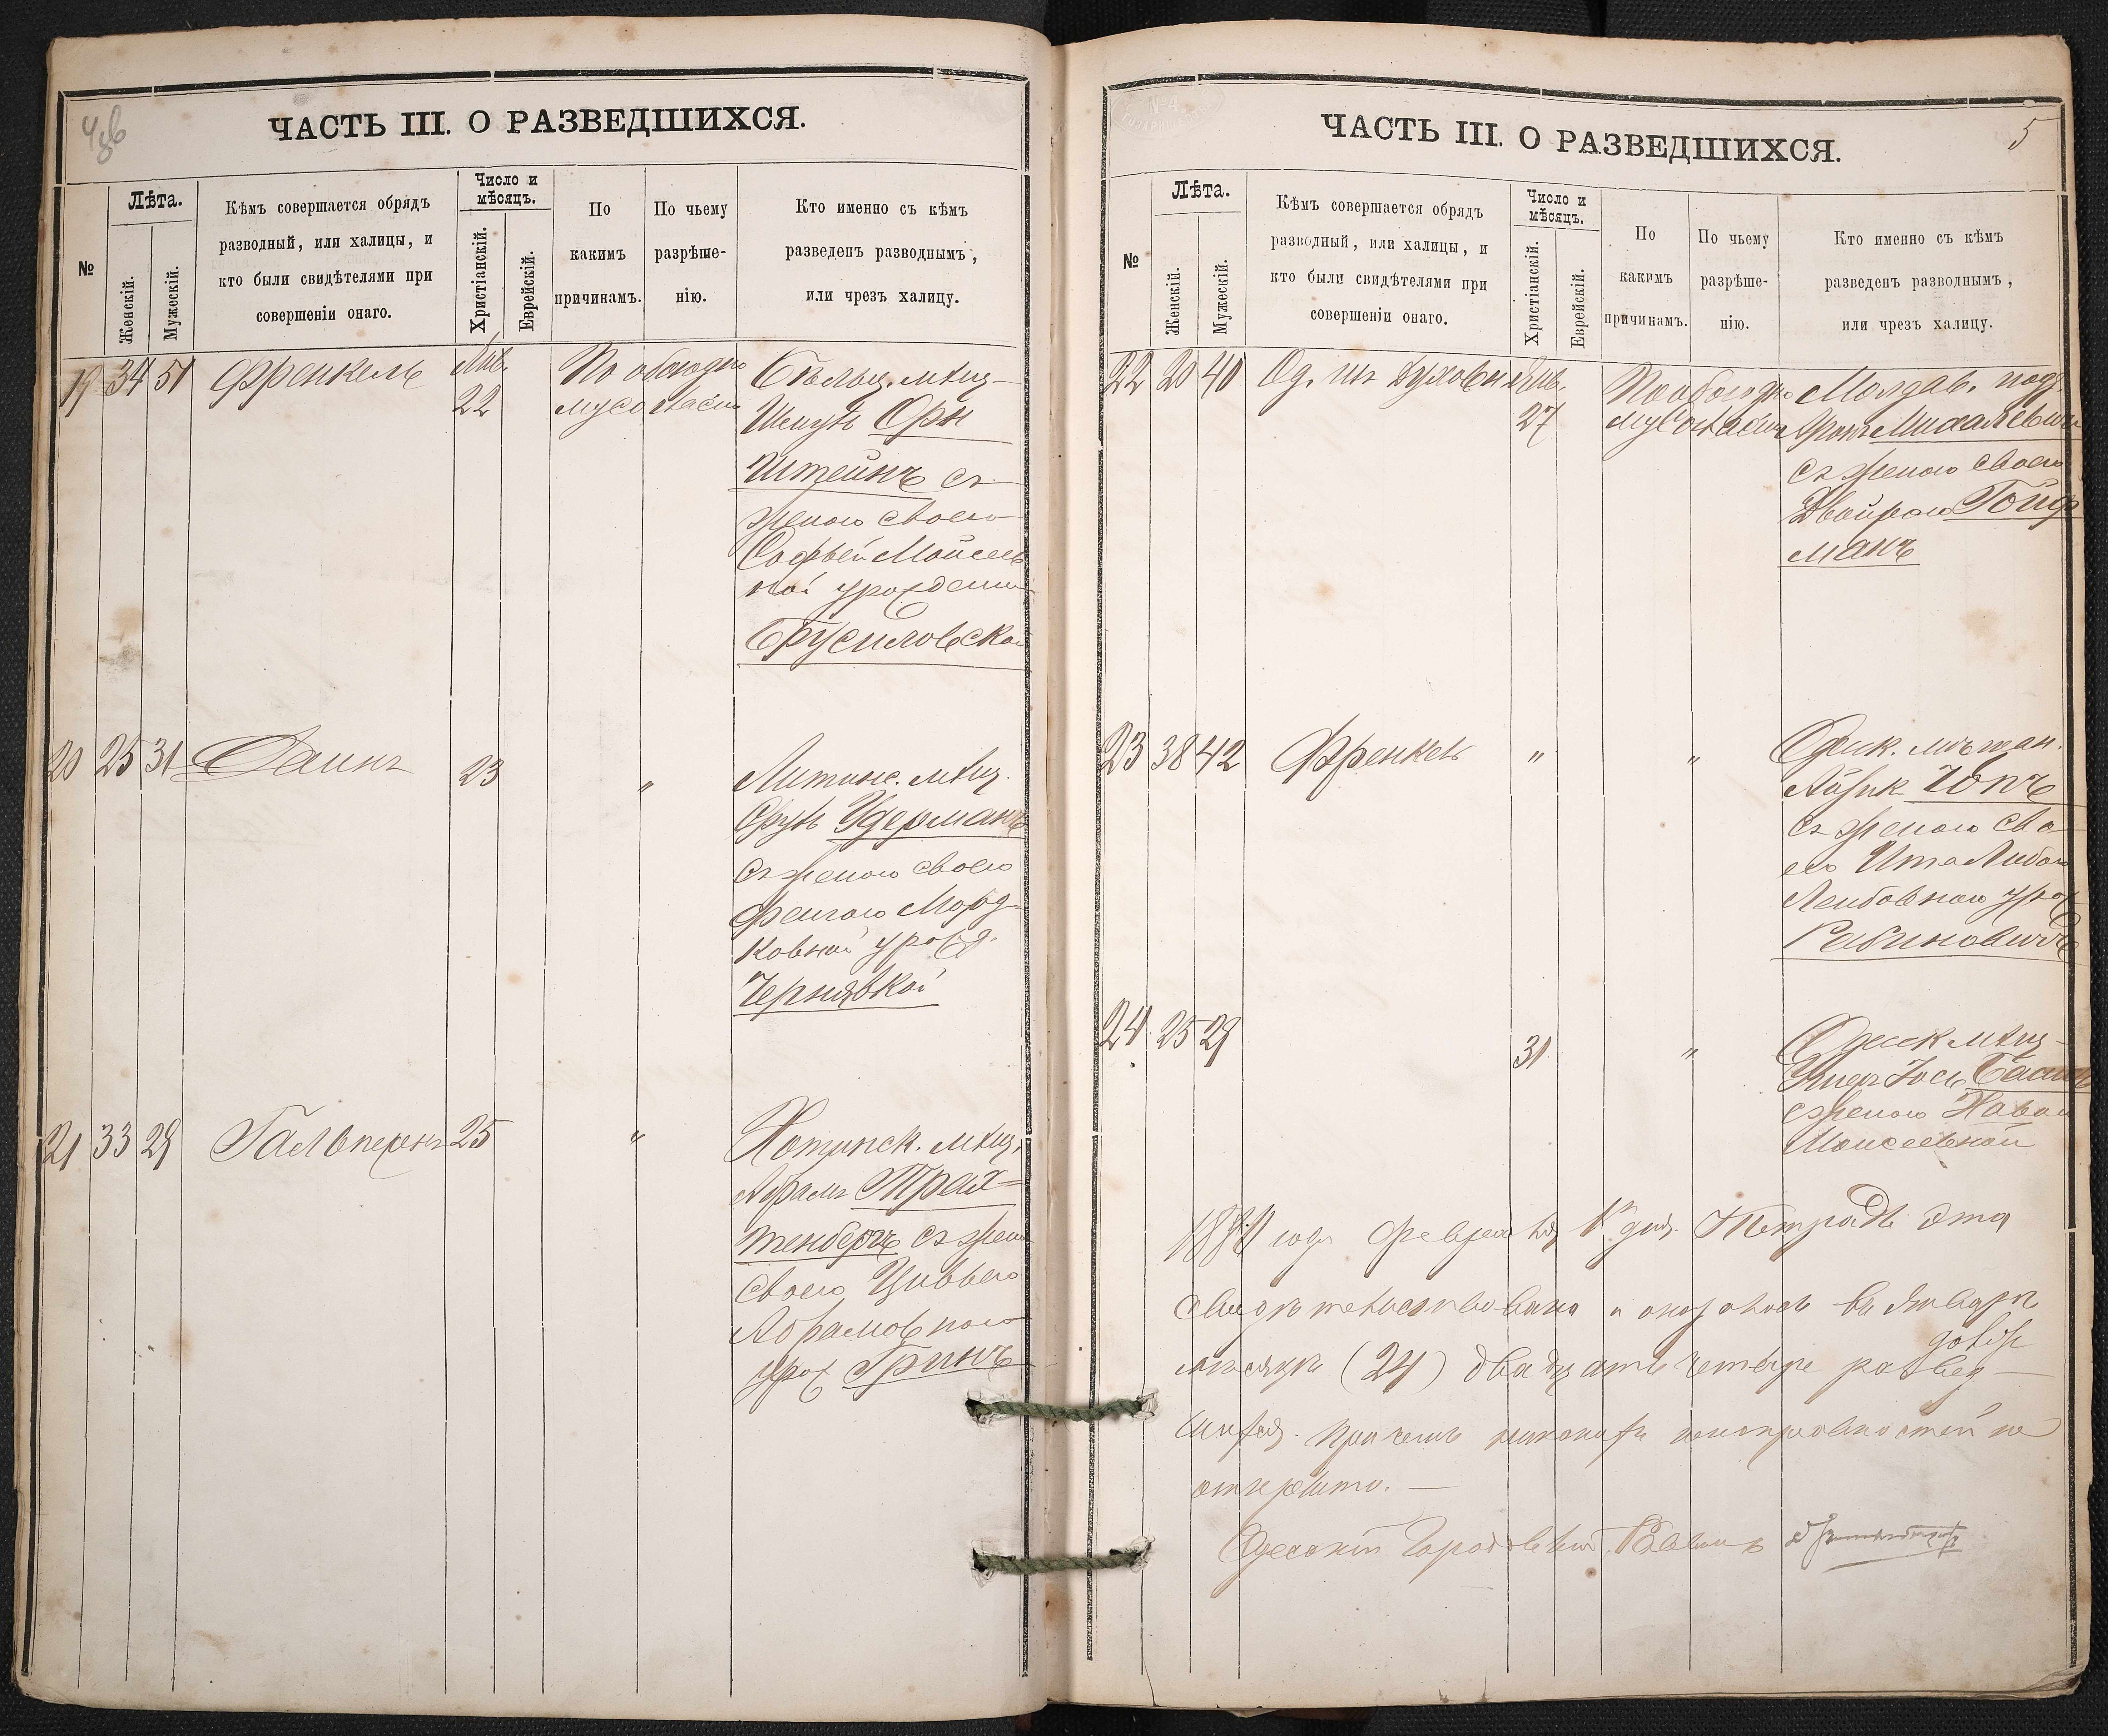 4 об
ЧАСТЬ III. О РАЗВЕДШИХСЯ.
№
Лѣта.
Женскій.
Мужескій.
Кѣмъ совершается обрядъ
разводный, или халицы, и
кто были свидѣтелями при
совершеніи онаго.
Число и
мѣсяцъ.
Христіанскій.
Еврейскій.
По
какимъ
причинамъ.
По чьему
разрѣше-
нію.
Кто именно съ кѣмъ
разведенъ разводнымъ,
или чрезъ халицу.
19 34 51 Френкель Янв. 22
По обоюдно
му согласію
Бѣльц. мѣщ.
Орн
Штейнъ съ
женою своею
Софьей Моисеев
ной урожденн
Брусиловской
20 25 31 Фаинъ 23 "
Литинс. мѣщ.
Сруль Удерманъ
съ женою своею
Фейгою Морд
ковной урожд.
Чернявской
21 33 29 Гальперинъ 25 "
Хотинск. мѣщ.
Абрамъ Трах=
тенбергъ съ жен
своею Цивьею
Абрамовною
урож Гринъ
5
ЧАСТЬ III. О РАЗВЕДШИХСЯ.
№
Лѣта.
Женскій.
Мужескій.
Кѣмъ совершается обрядъ
разводный, или халицы, и
кто были свидѣтелями при
совершеніи онаго.
Число и
мѣсяцъ.
Христіанскій.
Еврейскій.
По
какимъ
причинамъ.
По чьему
разрѣше-
нію.
Кто именно съ кѣмъ
разведенъ разводнымъ,
или чрезъ халицу.
22 20 40 Од. Духовн Янв. 27
По обоюдно
му согласію
Молдав. подд.
Аронъ Михалевичъ
съ женою своею
Двойрою Гойф
манъ
23 38 42 Френкель " "
мѣщан.
Айзик Юпъ
съ женою сво
ею Ита Либою
Лейбовною урож
Рабиновичъ
24 25 29 31 "
Одесск мѣщ.
Іось
съ женою Хавою
Моисеевной
года Февраля 1го дня. Тетрадь эта
свидѣтельствована и оказалось въ Январѣ
мѣсяцѣ (24) двадцать четыре развед-
шихся. При чемъ никакихъ неисправностей не
открыто. —
Одесскій Городовой Раввинъ